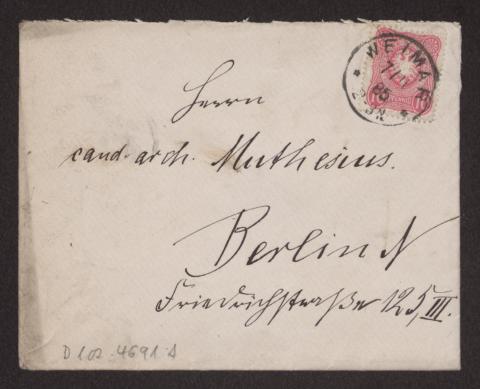 WEIMAR
85
PFENNIG
Herrn
cand. arch. Muthesius.
Berlin N
Friedrichstraße 125, III.
D 102-4691 A